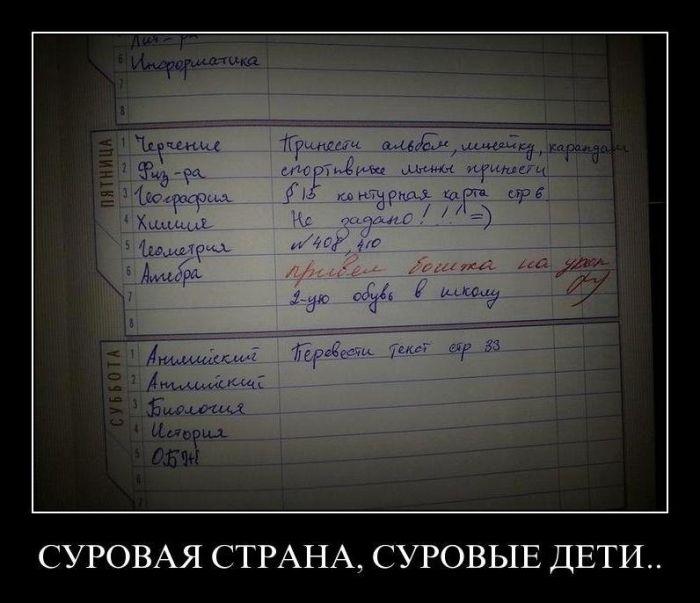 Лит-ра
6 Информатика
7
8
ПЯТНИЦА
1 Черчение Принести альбом, линейку, карандаш
2 Физ-ра спортивные лыжи принести
3 География § 15 контурная карта стр 6
4 Химия Не задано!!!! =)
5 Геометрия №408, 410
6 Алгебра привел бомжа на урок
7 2-ую обувь в школу
8
СУББОТА
1 Английский Перевести текст стр 33
2 Английский
3 Биология
4 История
5 ОБЖ
6
7
СУРОВАЯ СТРАНА, СУРОВЫЕ ДЕТИ..